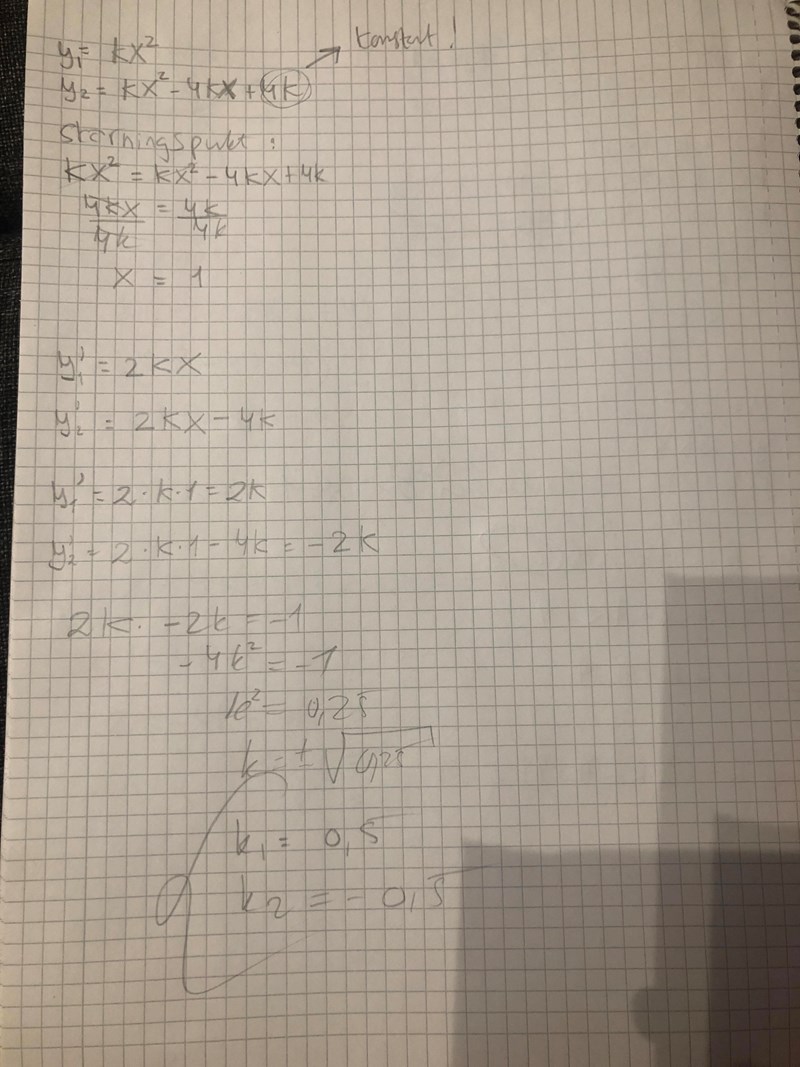 y₁ = kx²
konstant!
y₂ = kx² - 4kx + 4k
Skärningspunkt:
kx² = kx² - 4kx + 4k
4kx/4k = 4k/4k
x = 1
y₁' = 2kx
y₂' = 2kx - 4k
y₁' = 2·k·1 = 2k
y₂' = 2·k·1 - 4k = -2k
2k · -2k = -1
-4k² = -1
k² = 0,25
k = ±√0,25
k₁ = 0,5
k₂ = -0,5